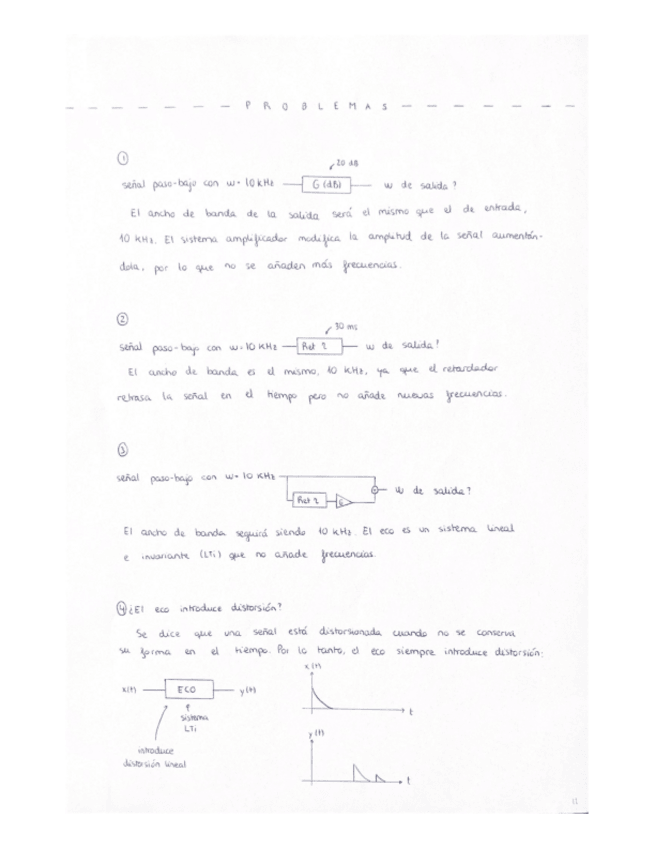 — — — — — — P R O B L E M A S — — — — — —
①
20 dB
señal paso-bajo con w= 10 kHz — G (dB) — w de salida?
El ancho de banda de la salida será el mismo que el de entrada,
10 kHz. El sistema amplificador modifica la amplitud de la señal aumentán-
dola, por lo que no se añaden más frecuencias.
②
30 ms
señal paso-bajo con w= 10 KHz — Ret τ — w de salida?
El ancho de banda es el mismo, 10 kHz, ya que el retardador
retrasa la señal en el tiempo pero no añade nuevas frecuencias.
③
señal paso-bajo con w= 10 KHz
Ret τ
w de salida?
El ancho de banda seguirá siendo 10 kHz. El eco es un sistema lineal
e invariante (LTi) que no añade frecuencias.
④ ¿El eco introduce distorsión?
Se dice que una señal está distorsionada cuando no se conserva
su forma en el tiempo. Por lo tanto, el eco siempre introduce distorsión:
x(t) — ECO — y(t)
sistema
LTi
introduce
distorsión lineal
x(t)
t
y(t)
t